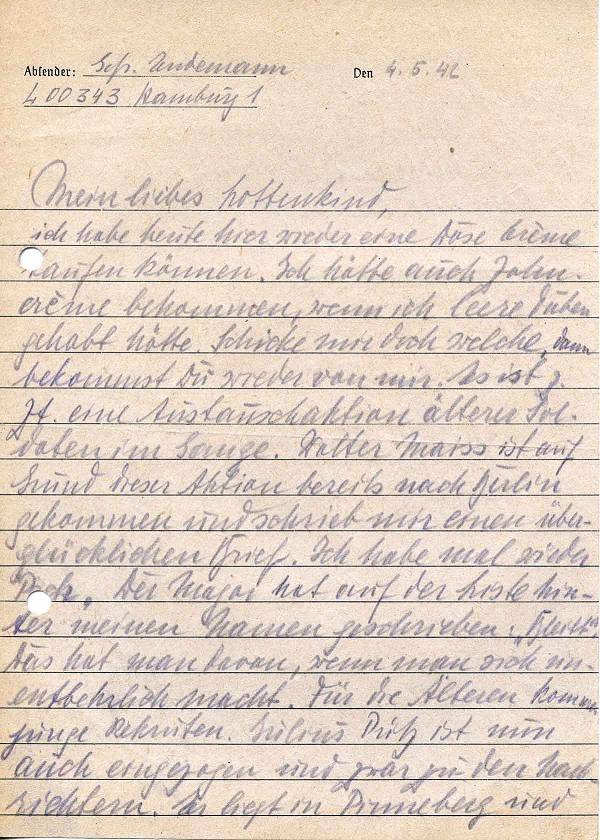 Absender: Gefr. Lindemann Den 4.5.42
L 00343 Hamburg 1
Mein liebes Lottenkind,
ich habe heute hier wieder eine Dose Crème
kaufen können. Ich hätte auch Zahn-
crème bekommen, wenn ich leere Tuben
gehabt hätte. Schicke mir doch welche, dann
bekommst Du wieder von mir. Es ist z.
Zt. eine Austauschaktion älterer Sol-
daten im Gange. Walter Maiss ist auf
Grund dieser Aktion bereits nach Berlin
gekommen und schrieb mir einen über-
glücklichen Brief. Ich habe mal wieder
Pech. Der Major hat auf der Liste hin-
ter meinen Namen geschrieben: „Bleibt“
Das hat man davon, wenn man sich un-
entbehrlich macht. Für die Älteren kommen
junge Rekruten. Julius ist nun
auch eingezogen und zwar zu den Nach-
richtern. Er liegt in Pinneberg und